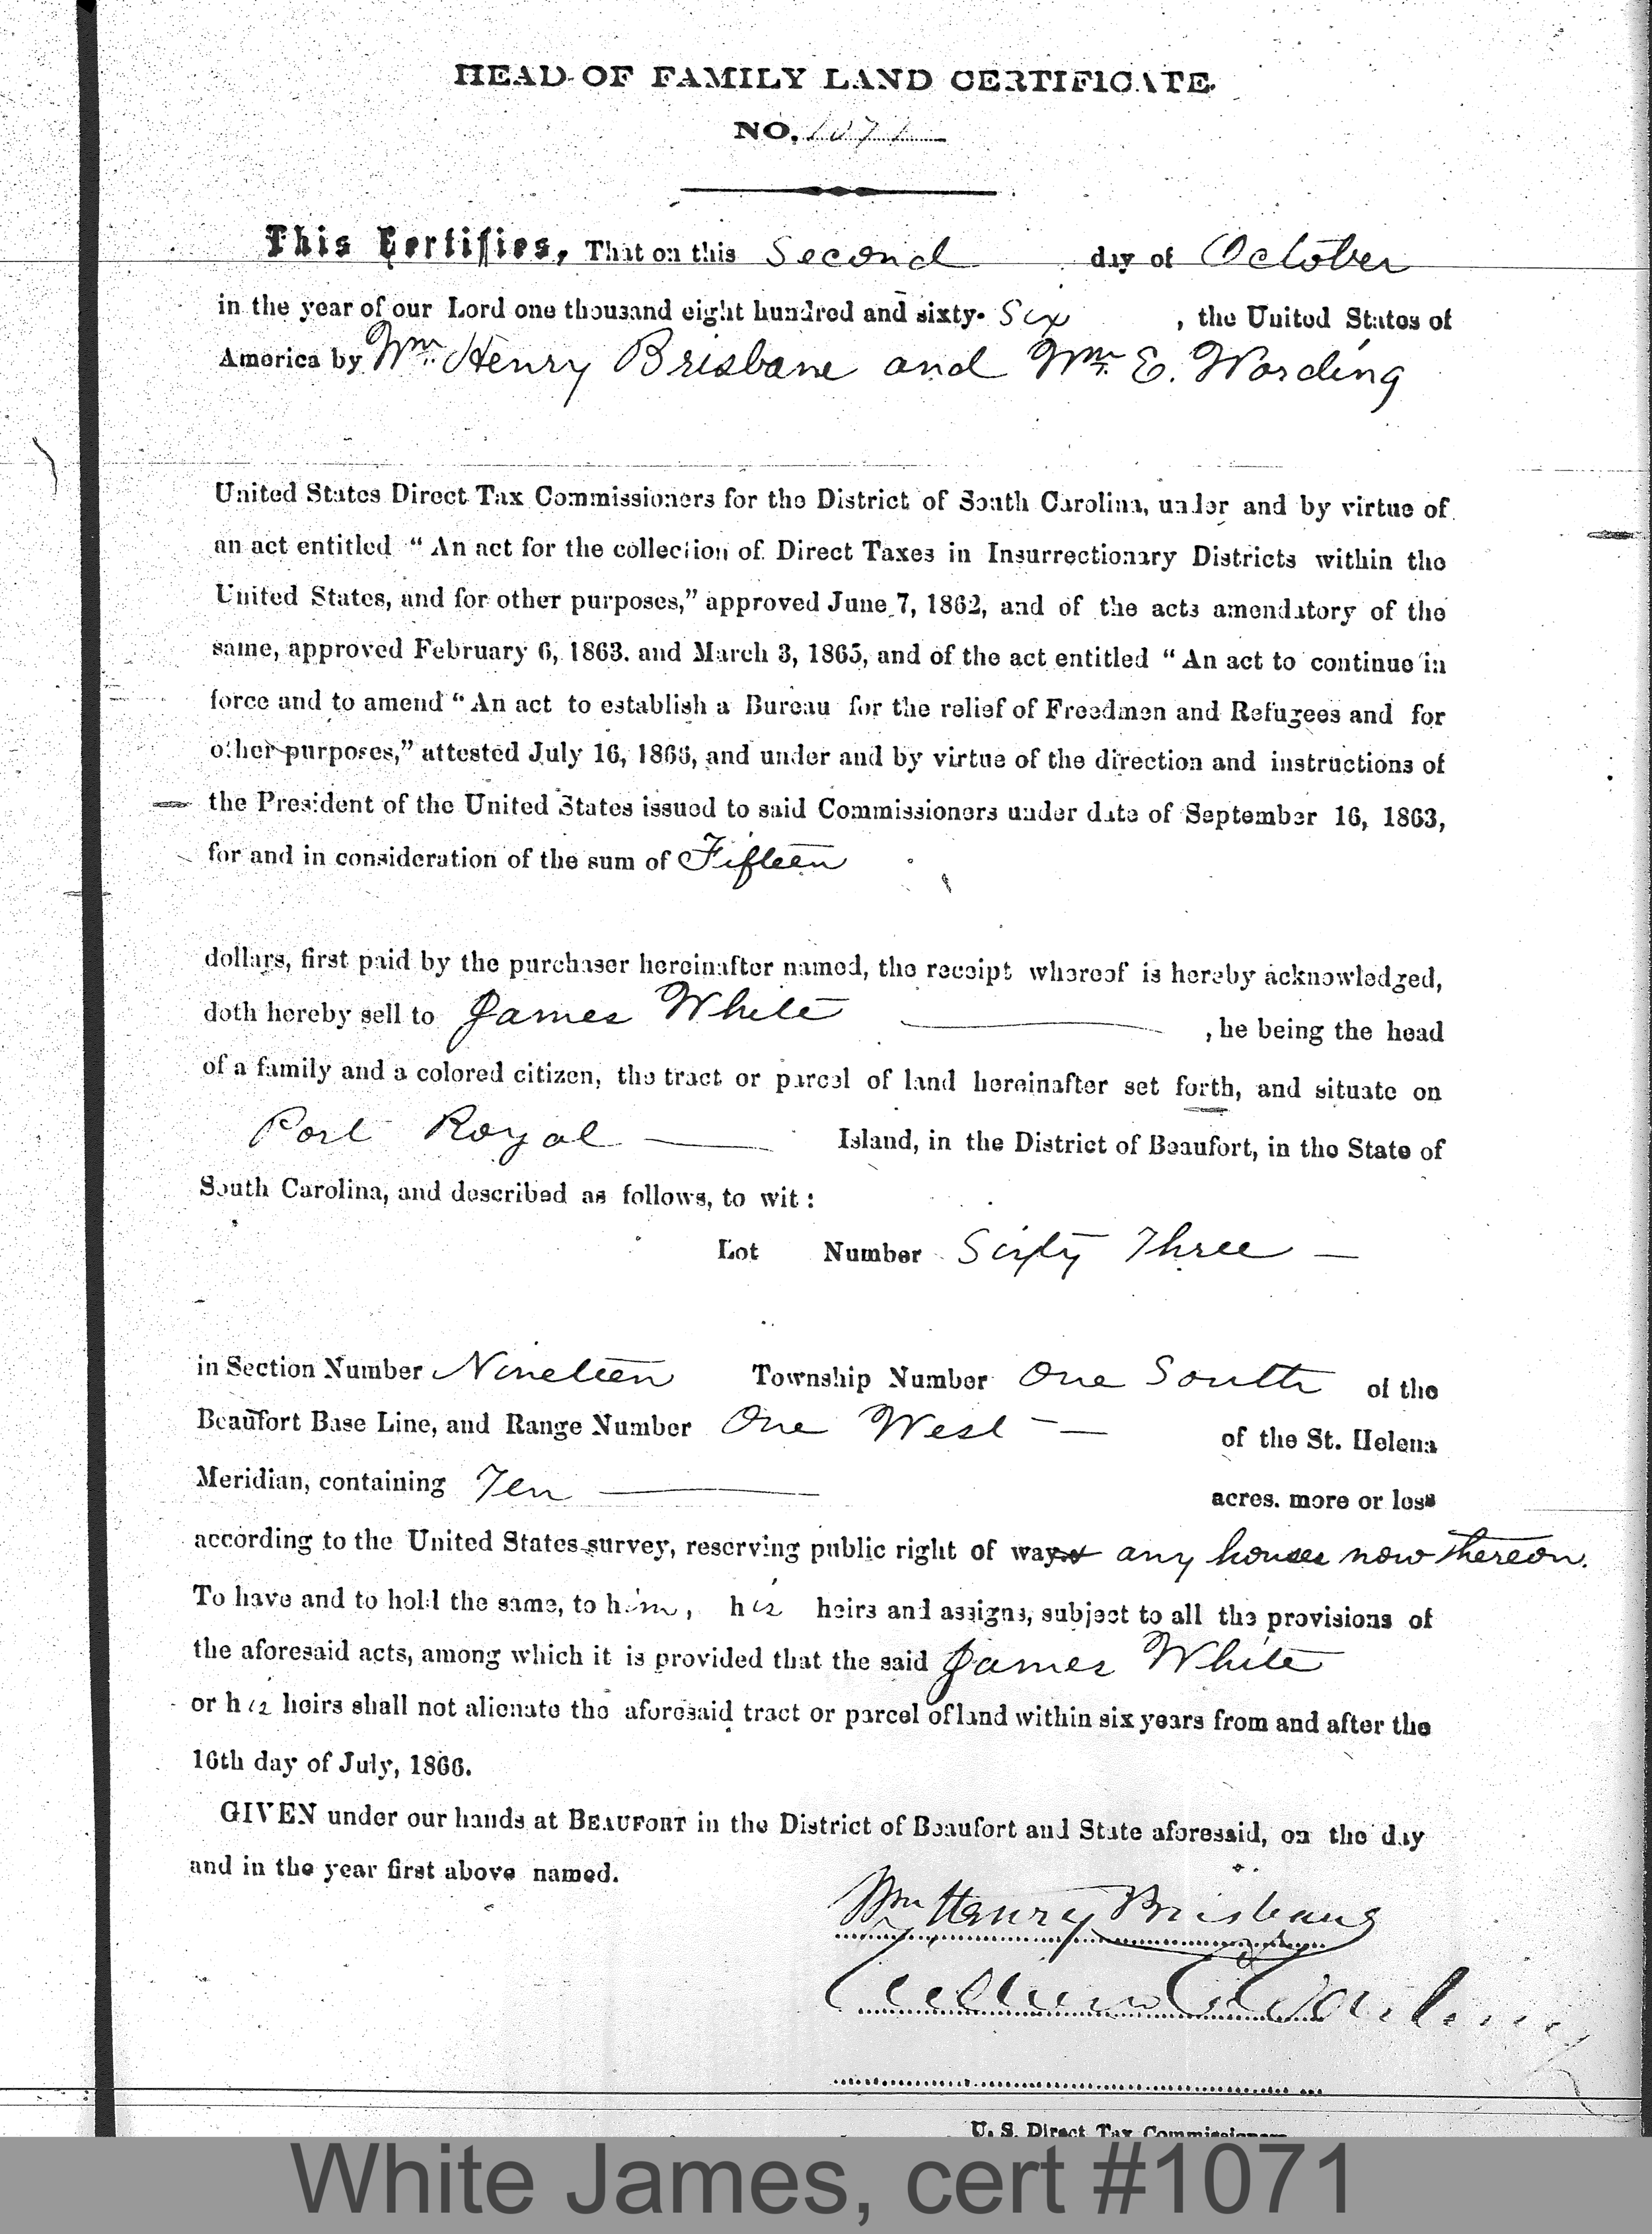 HEAD OF FAMILY LAND CERTIFICATE.
NO. 1071
This Certifies, That on this Second day of October
in the year of our Lord one thousand eight hundred and sixty- Six , the United States of
America by Wm. Henry Brisbane and Wm. E. Wording
United States Direct Tax Commissioners for the District of South Carolina, under and by virtue of
an act entitled “ An act for the collection of Direct Taxes in Insurrectionary Districts within the
United States, and for other purposes,” approved June 7, 1862, and of the acts amendatory of the
same, approved February 6, 1863. and March 3, 1865, and of the act entitled “ An act to continue in
force and to amend “ An act to establish a Bureau for the relief of Freedmen and Refugees and for
other purposes,” attested July 16, 1866, and under and by virtue of the direction and instructions of
the President of the United States issued to said Commissioners under date of September 16, 1863,
for and in consideration of the sum of Fifteen
dollars, first paid by the purchaser hereinafter named, the receipt whereof is hereby acknowledged,
doth hereby sell to James White , he being the head
of a family and a colored citizen, the tract or parcel of land hereinafter set forth, and situate on
Port Royal Island, in the District of Beaufort, in the State of
South Carolina, and described as follows, to wit :
Lot Number Sixty Three
in Section Number Nineteen Township Number One South of the
Beaufort Base Line, and Range Number One West of the St. Helena
Meridian, containing Ten acres. more or less
according to the United States survey, reserving public right of way & any houses now thereon.
To have and to hold the same, to him, his heirs and assigns, subject to all the provisions of
the aforesaid acts, among which it is provided that the said James White
or his heirs shall not alienate the aforesaid tract or parcel of land within six years from and after the
16th day of July, 1866.
GIVEN under our hands at BEAUFORT in the District of Beaufort and State aforesaid, on the day
and in the year first above named.
Wm Henry Brisbane
U. S. Direct Tax Commissioners
White James, cert #1071